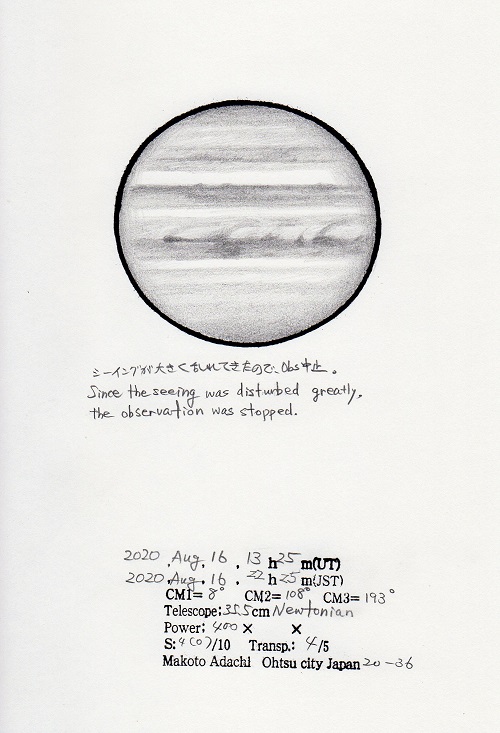 シーイングが大きくみだれてきたので、Obs中止。
Since the seeing was disturbed greatly,
the observation was stopped.
2020 . Aug. 16 . 13 h 25 m(UT)
2020 . Aug. 16 . 22 h 25 m(JST)
CM1= 8° CM2= 108° CM3= 193°
Telescope: 35.5cm Newtonian
Power: 400 × ×
S: 4(0)/10 Transp.: 4/5
Makoto Adachi Ohtsu city Japan 20-36